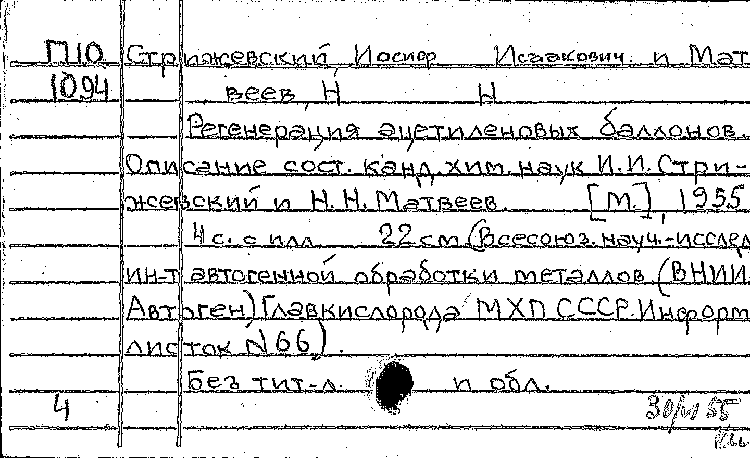 П10 Стрижевский, Иосиф Исаакович. и Мат
1094 веев, Н Н
Регенерация ацетиленовых баллонов.
Описание сост. канд. хим. наук И.И. Стри-
жевский и Н.Н. Матвеев. [М.], 1955
4 с. с илл. 22 см. (Всесоюз. науч.-исслед
ин-т автогенной обработки металлов (ВНИИ
Автоген) Главкислорода МХП СССР. Информ
листок № 66).
Без тит. л. и обл.
4